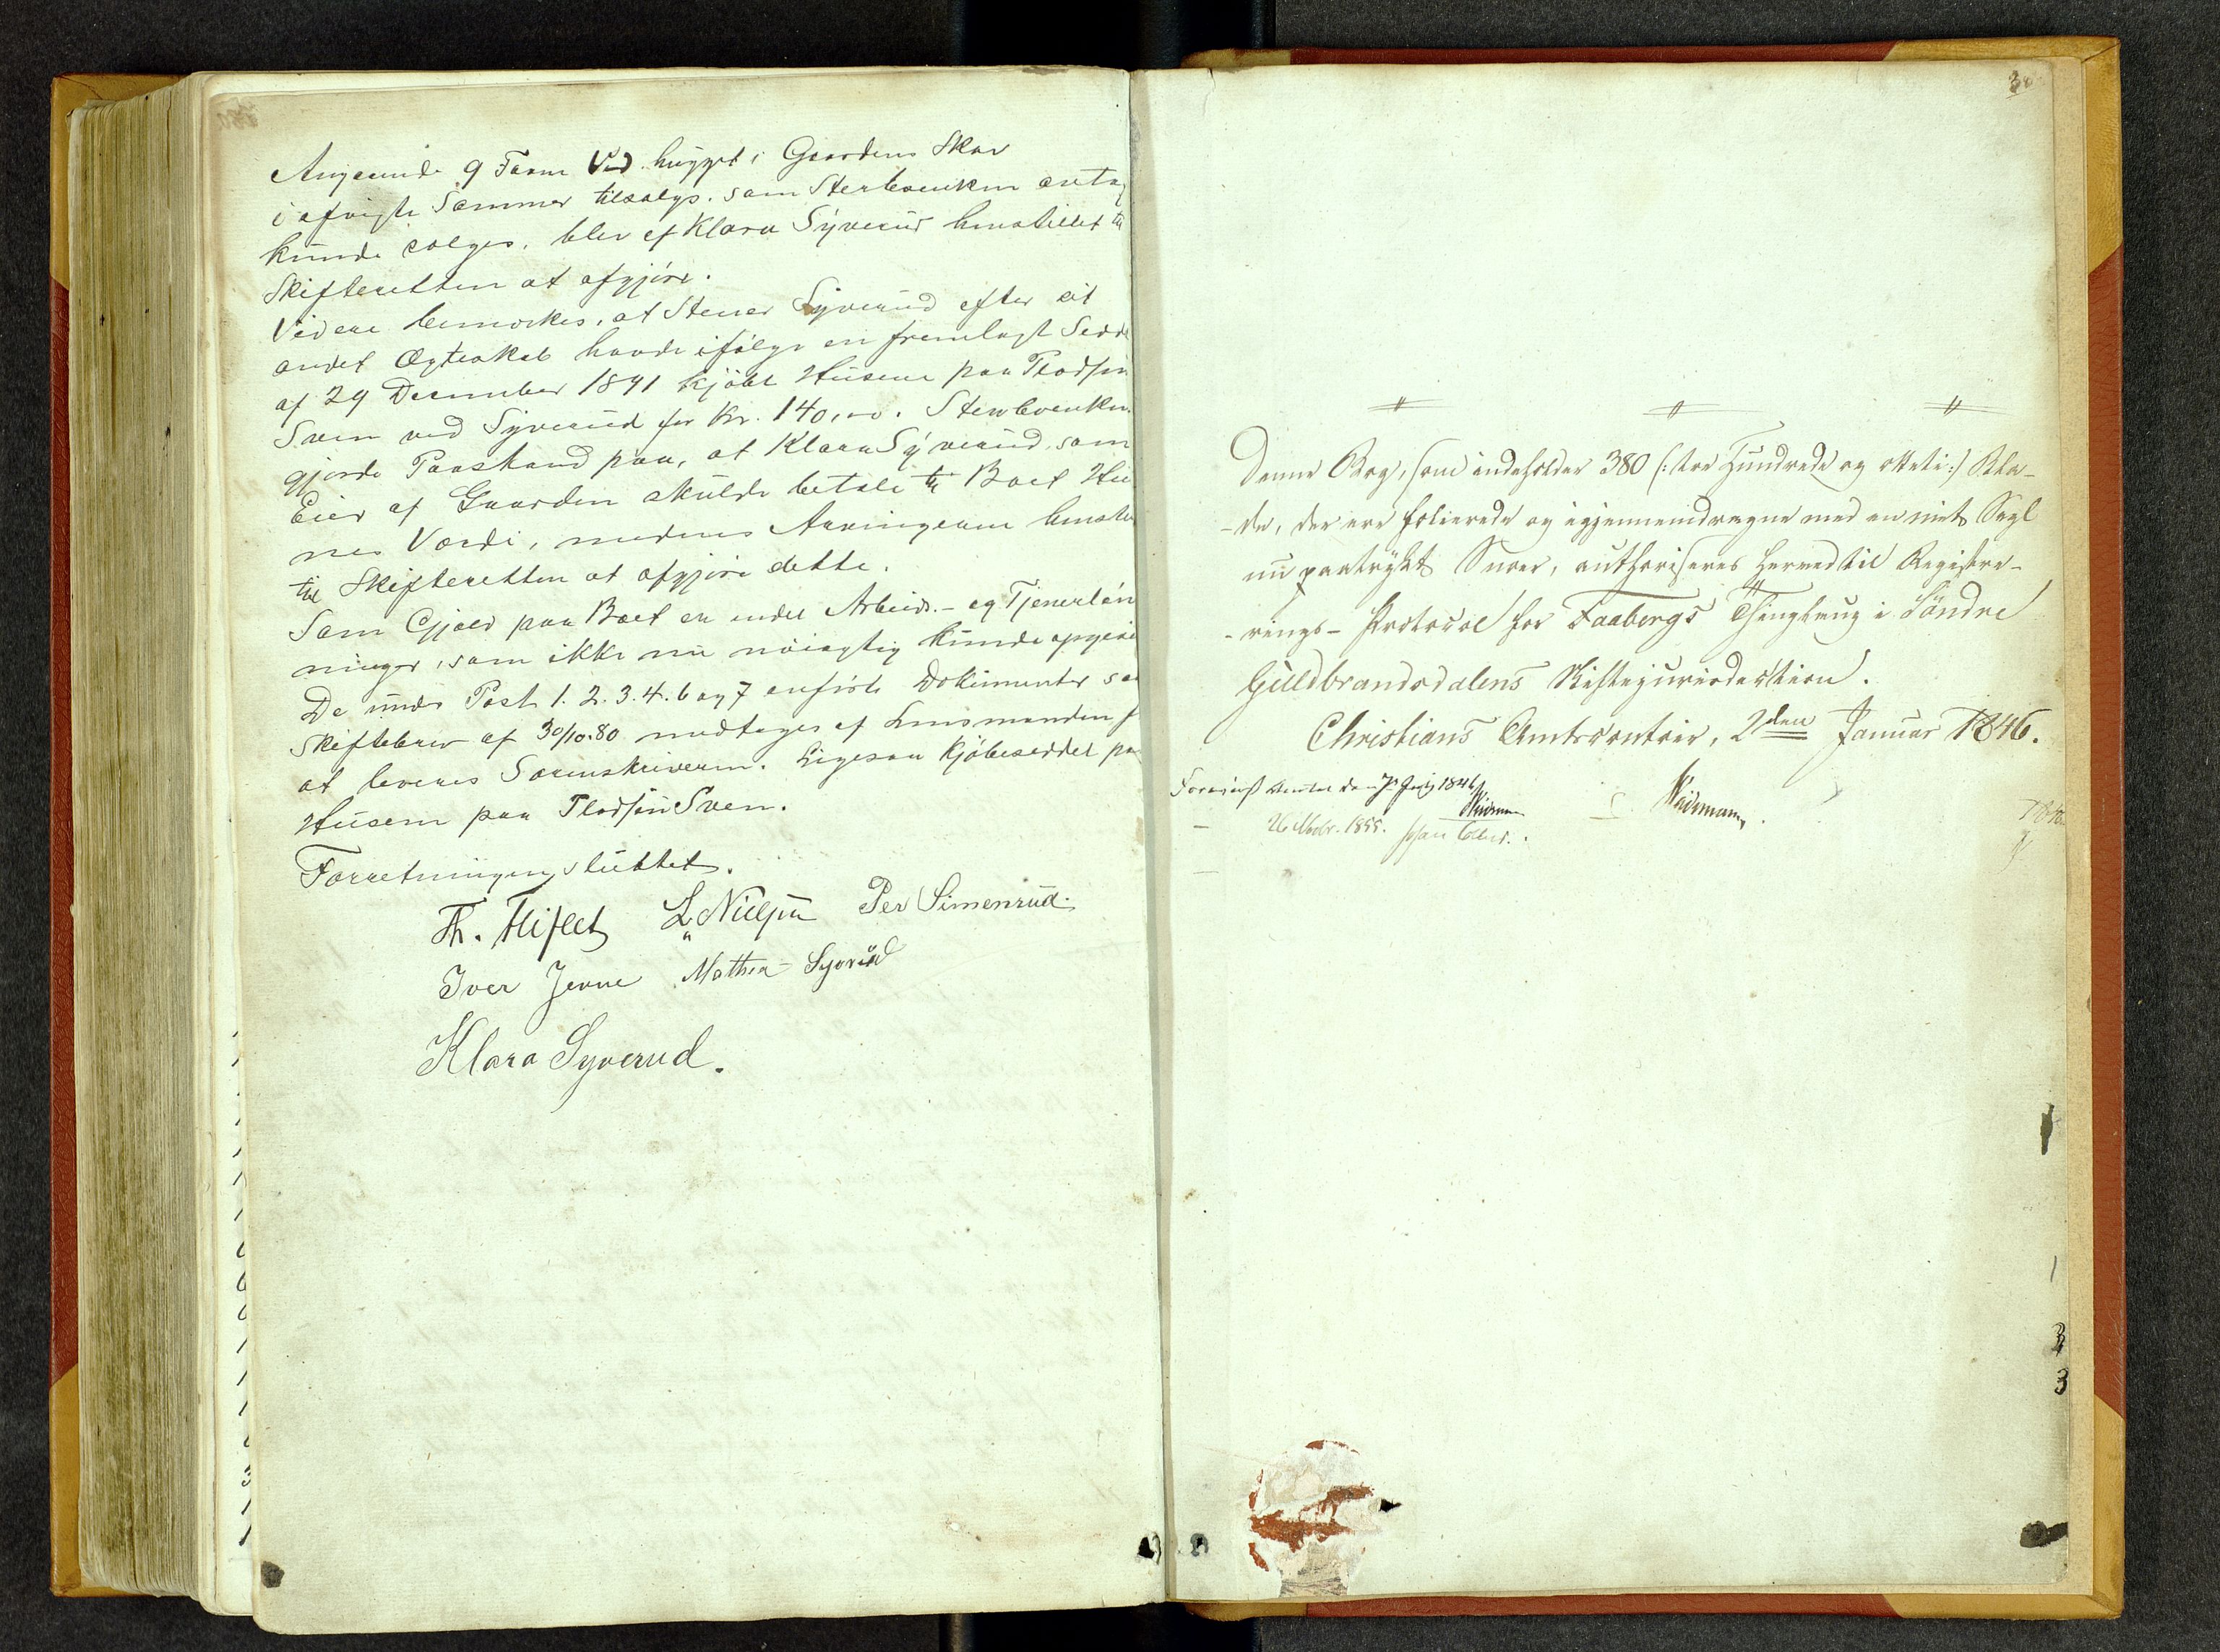 Angaaende 9 Favne Ved hugget i Gaardens Skov
i afvigte Sommer tilsalgs, som Sterbenken antog
kunde sælges, blev af Klara Syverud henstillet til
Skifteretten at afgjøre.
Videre bemærkes, at Stener Syverud efter sit
andet Ægteskab havde ifølge en fremlagt Sedd
af 29 December 1891 kjøbt Husene paa
Sven ved Syverud for Kr. 140,00.
gjorde Paastand paa, at Klara Syverud som
Eier af Gaarden skulde betale til Boet Hu
nes Værdi, medens Arvingerne henstil
til Skifteretten at afgjøre dette.
Som Gjæld paa Boet er endel Arbeids- og Tjenerløn
ninger, som ikke nu nøiagtig kunde opgives
De under Post 1. 2. 3. 4. 6 og 7 anførte Dokumenter sa
Skiftebrev af 30/10.80 modtages af Lensmanden f
at leveres Sorenskriveren. Ligesaa Kjøbeseddel pa
Husene paa Sven.
Forretningen sluttet.
Th. Fliflet L. Nielsen Per Simenrud.
Iver Jevne Mathea Syverud
Klara Syverud.
38
Denne Bog, som indeholder 380 (: tre Hundrede og otteti :) Bla-
-de, der ere folierede og igjennemdragne med en mit Segl
nu paatrykt Snoer, authoriseres herved til Registre-
-rings-Protocol for Faabergs Thinglaug i Søndre
Guldbrandsdalens Skiftejurisdiction.
Christians Amtscontoir, 2den Januar 1846.
den 7 July 1846
Weidemann
26 Novbr. 1855. Collett.